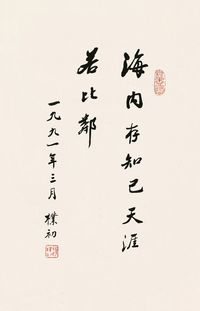 海内存知己天涯
若比鄰
一九九一年三月 樸初